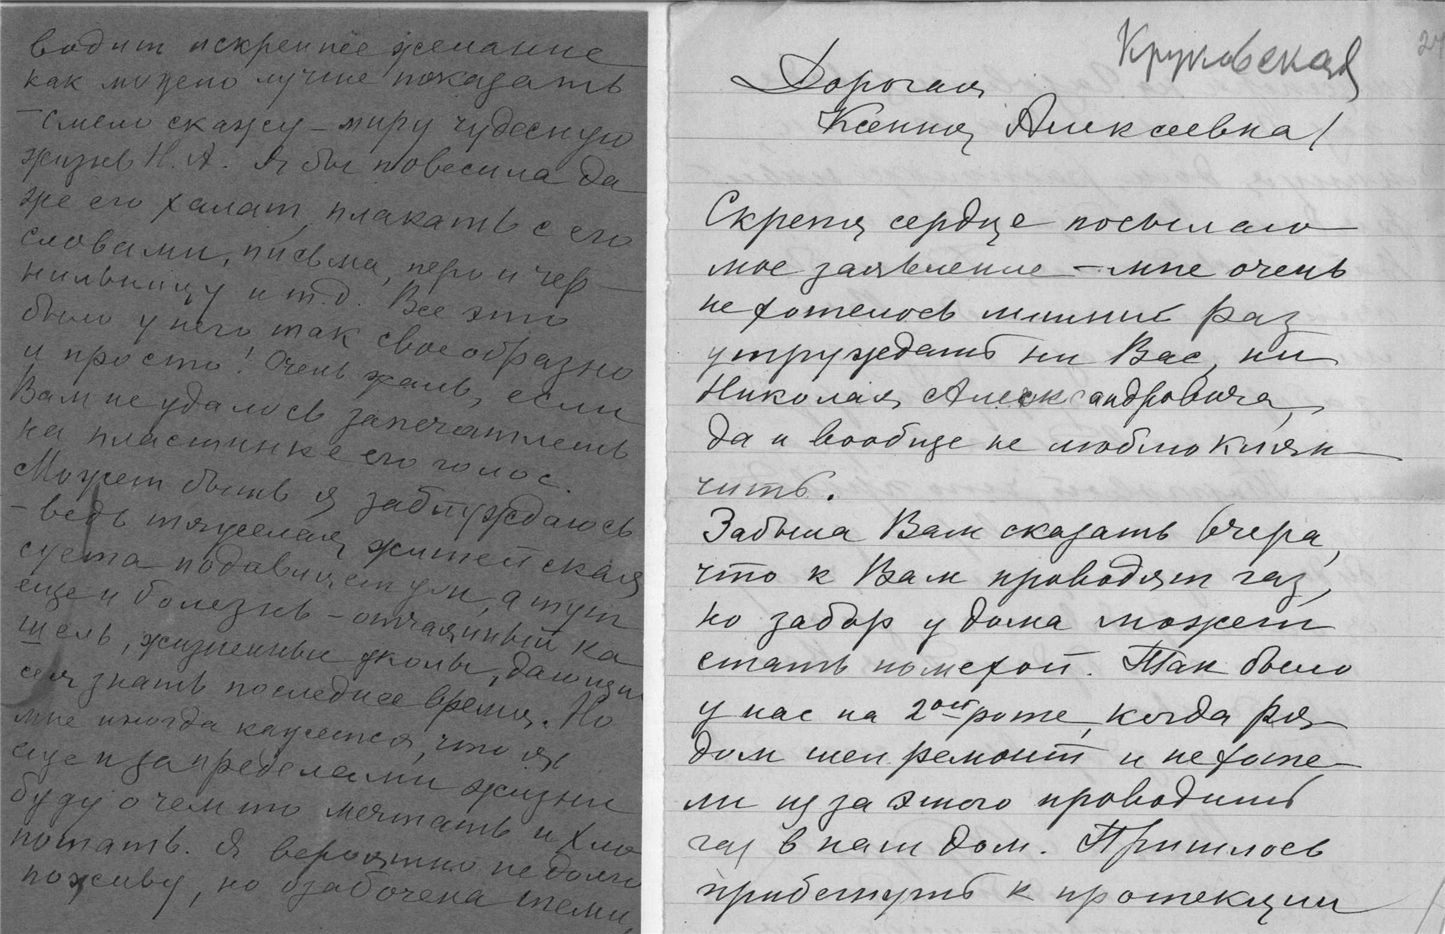 водит искреннее желание
как можно лучше показать
– смело скажу – миру чудесную
жизнь Н.А. Я бы повесила да-
же его халат, плакать с его
словами, письма, перо и чер-
нильницу и т.д. Все это
было у него так своеобразно
и просто! Очень жаль, если
Вам не удалось запечатлеть
на пластинке его голос.
Может быть я заблуждаюсь
– ведь тяжелая житейская
суета подавляет ум, а тут
еще и болезнь – отчаянный ка
шель, жизненные уколы, дающие
себя знать последнее время. Но
мне иногда кажется, что я
еще и за пределами жизни
буду о чем то мечтать и хло
потать. Я вероятно недолго
поживу, но озабочена теми,
Круковская
Дорогая
Ксения Алексеевна!
Скрепя сердце посылаю
мое заявление – мне очень
не хотелось лишний раз
утруждать ни Вас, ни
Николая Александровича,
да и вообще не люблю клян-
чить.
Забыла Вам сказать вчера,
что к Вам проводят газ,
но забор у дома может
стать помехой. Так было
у нас на 2ой роте, когда ря-
дом шел ремонт и не хоте-
ли из за этого проводить
газ в наш дом. Пришлось
прибегнуть к протекции